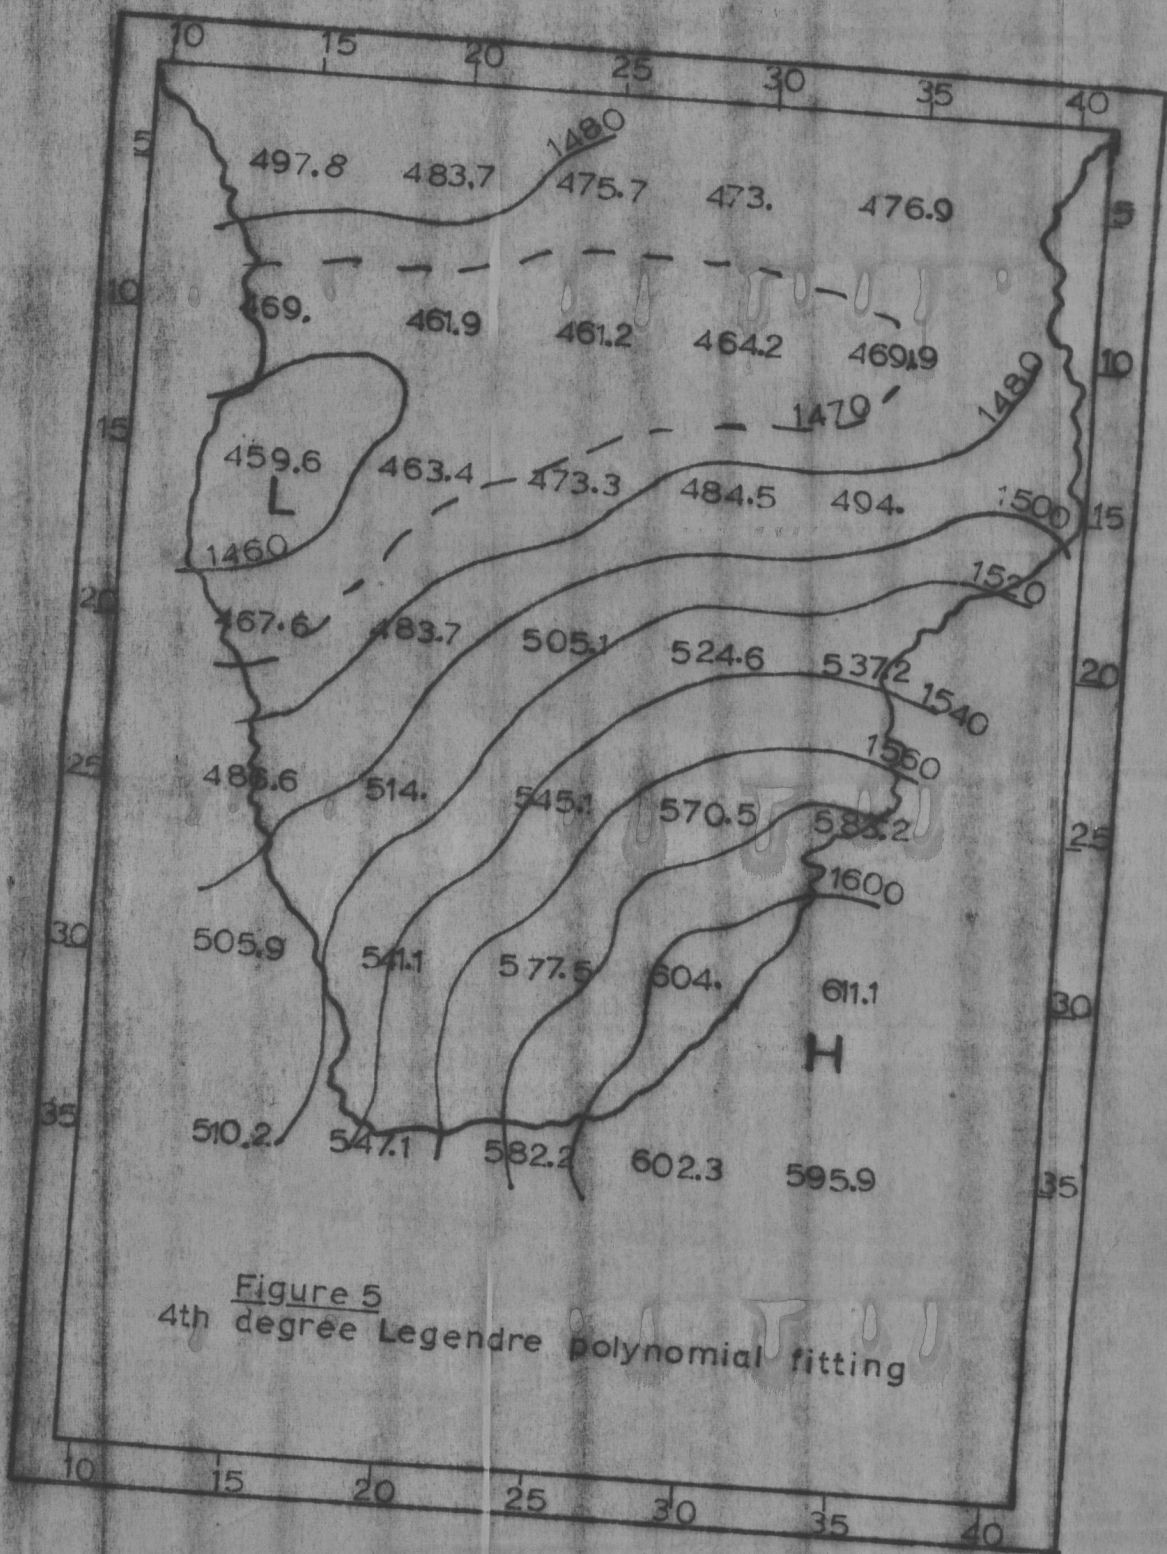 10 15 20 25 30 35 40
5 5
497.8 483.7 1480 475.7 473. 476.9
10 10
469. 461.9 461.2 464.2 469.9
1470 1480
15 15
459.6 463.4 473.3 484.5 494. 1500
L
1460 1520
20 20
467.6 483.7 505.1 524.6 537.2
1540
1560
25 25
486.6 514. 545.1 570.5
1600
30 30
505.9 541.1 577.5 604. 611.1
H
35 35
510.2 547.1 582.2 602.3 595.9
Figure 5
4th degree Legendre polynomial fitting
10 15 20 25 30 35 40